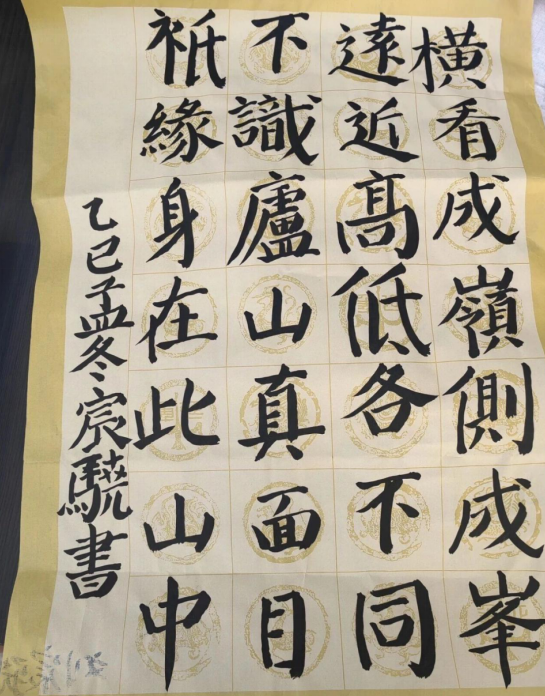 橫看成嶺側成峯
遠近高低各不同
不識廬山真面目
祇緣身在此山中
乙巳孟冬宸驍書